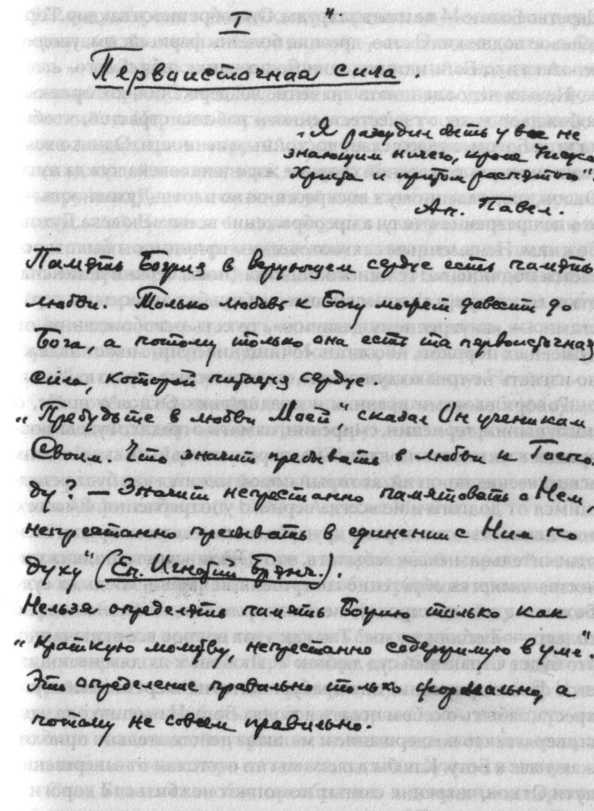 I ч.
Первоисточная сила.
„Я рассудил быть у вас не
знающим ничего, кроме Иисуса
Христа и притом распятого".
Ап. Павел.
Память Божия в верующем сердце есть память
любви. Только любовь к Богу может довести до
Бога, а потому только она есть та первоисточная
сила, которой питается сердце.
„Пребудьте в любви Моей", сказал Он ученикам
Своим. Что значит пребывать в любви к Госпо-
ду? — Значит непрестанно памятовать о Нем,
непрестанно пребывать в единении с Ним по
духу" (Еп. Игнатий Брянч.).
Нельзя определять память Божию только как
„краткую молитву, непрестанно содержимую в уме".
Это определение правильно только формально, а
потому не совсем правильно.